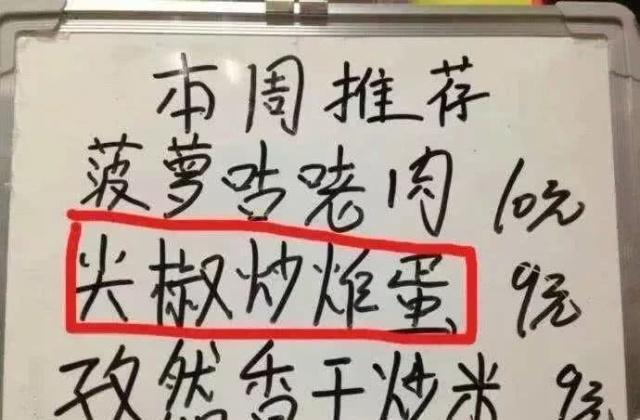 本周推荐
菠萝咕咾肉 10元
尖椒炒炸蛋 9元
孜然香干炒米 9元